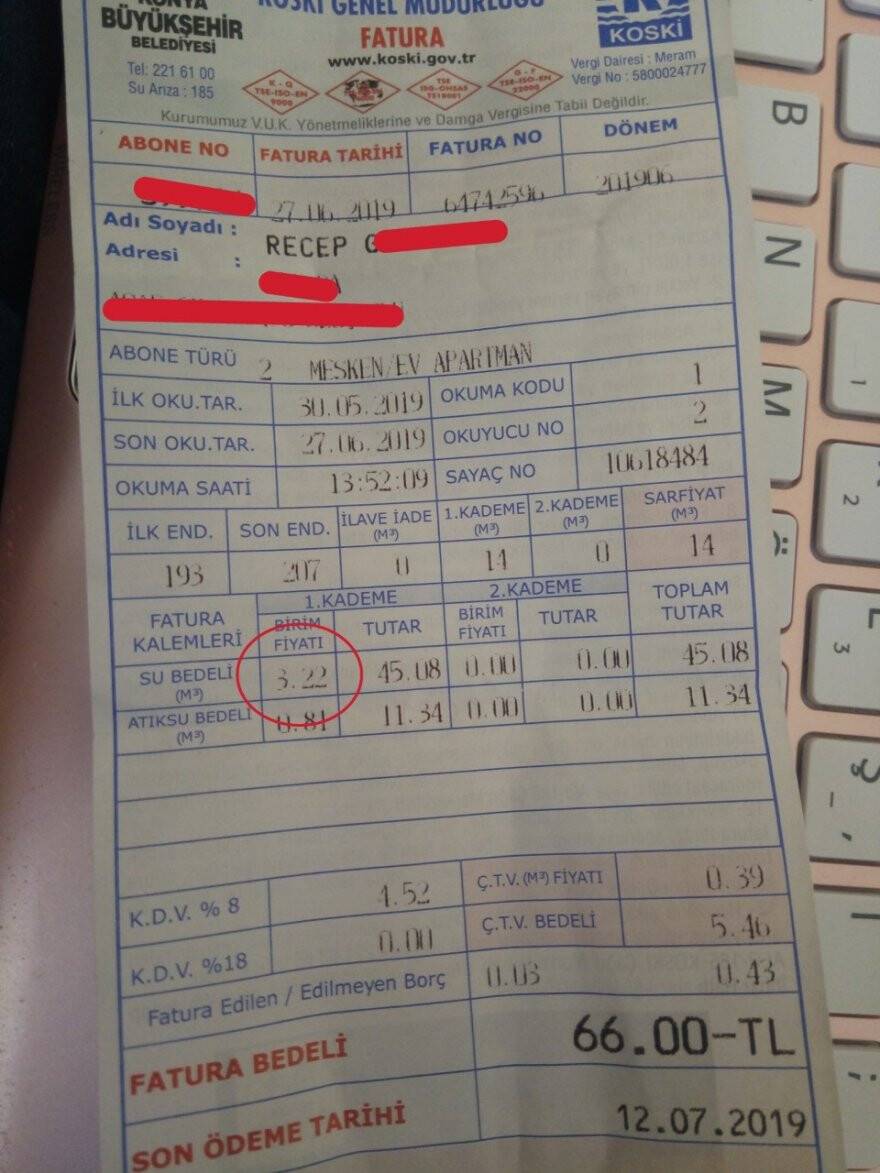 KONYA
BÜYÜKŞEHİR
BELEDİYESİ
Tel: 221 61 00
Su Arıza : 185
KOSKİ GENEL MÜDÜRLÜĞÜ
FATURA
www.koski.gov.tr
KOSKİ
Vergi Dairesi : Meram
Vergi No : 5800024777
K - Q
TSE-ISO-EN
9000
TSE
ISO-OHSAS
18001
G - F
TSE-ISO-EN
22000
Kurumumuz V.U.K. Yönetmeliklerine ve Damga Vergisine Tabii Değildir.
ABONE NO FATURA TARİHİ FATURA NO DÖNEM
27.06.2019 64742596 201906
Adı Soyadı : RECEP G
Adresi :
ABONE TÜRÜ 2 MESKEN/EV APARTMAN
İLK OKU.TAR. 30.05.2019 OKUMA KODU 1
SON OKU.TAR. 27.06.2019 OKUYUCU NO 2
OKUMA SAATİ 13:52:09 SAYAÇ NO 10618484
İLK END. SON END. İLAVE İADE (M³) 1.KADEME (M³) 2.KADEME (M³) SARFİYAT (M³)
193 207 0 14 0 14
FATURA KALEMLERİ 1.KADEME 2.KADEME TOPLAM TUTAR
BİRİM FİYATI TUTAR BİRİM FİYATI TUTAR
SU BEDELİ (M³) 3.22 45.08 0.00 0.00 45.08
ATIKSU BEDELİ (M³) 0.81 11.34 0.00 0.00 11.34
K.D.V. % 8 4.52 Ç.T.V. (M³) FİYATI 0.39
K.D.V. %18 0.00 Ç.T.V. BEDELİ 5.46
Fatura Edilen / Edilmeyen Borç 0.03 0.43
FATURA BEDELİ 66.00-TL
SON ÖDEME TARİHİ 12.07.2019
B
N
M
1
2
Ö
3
Ş